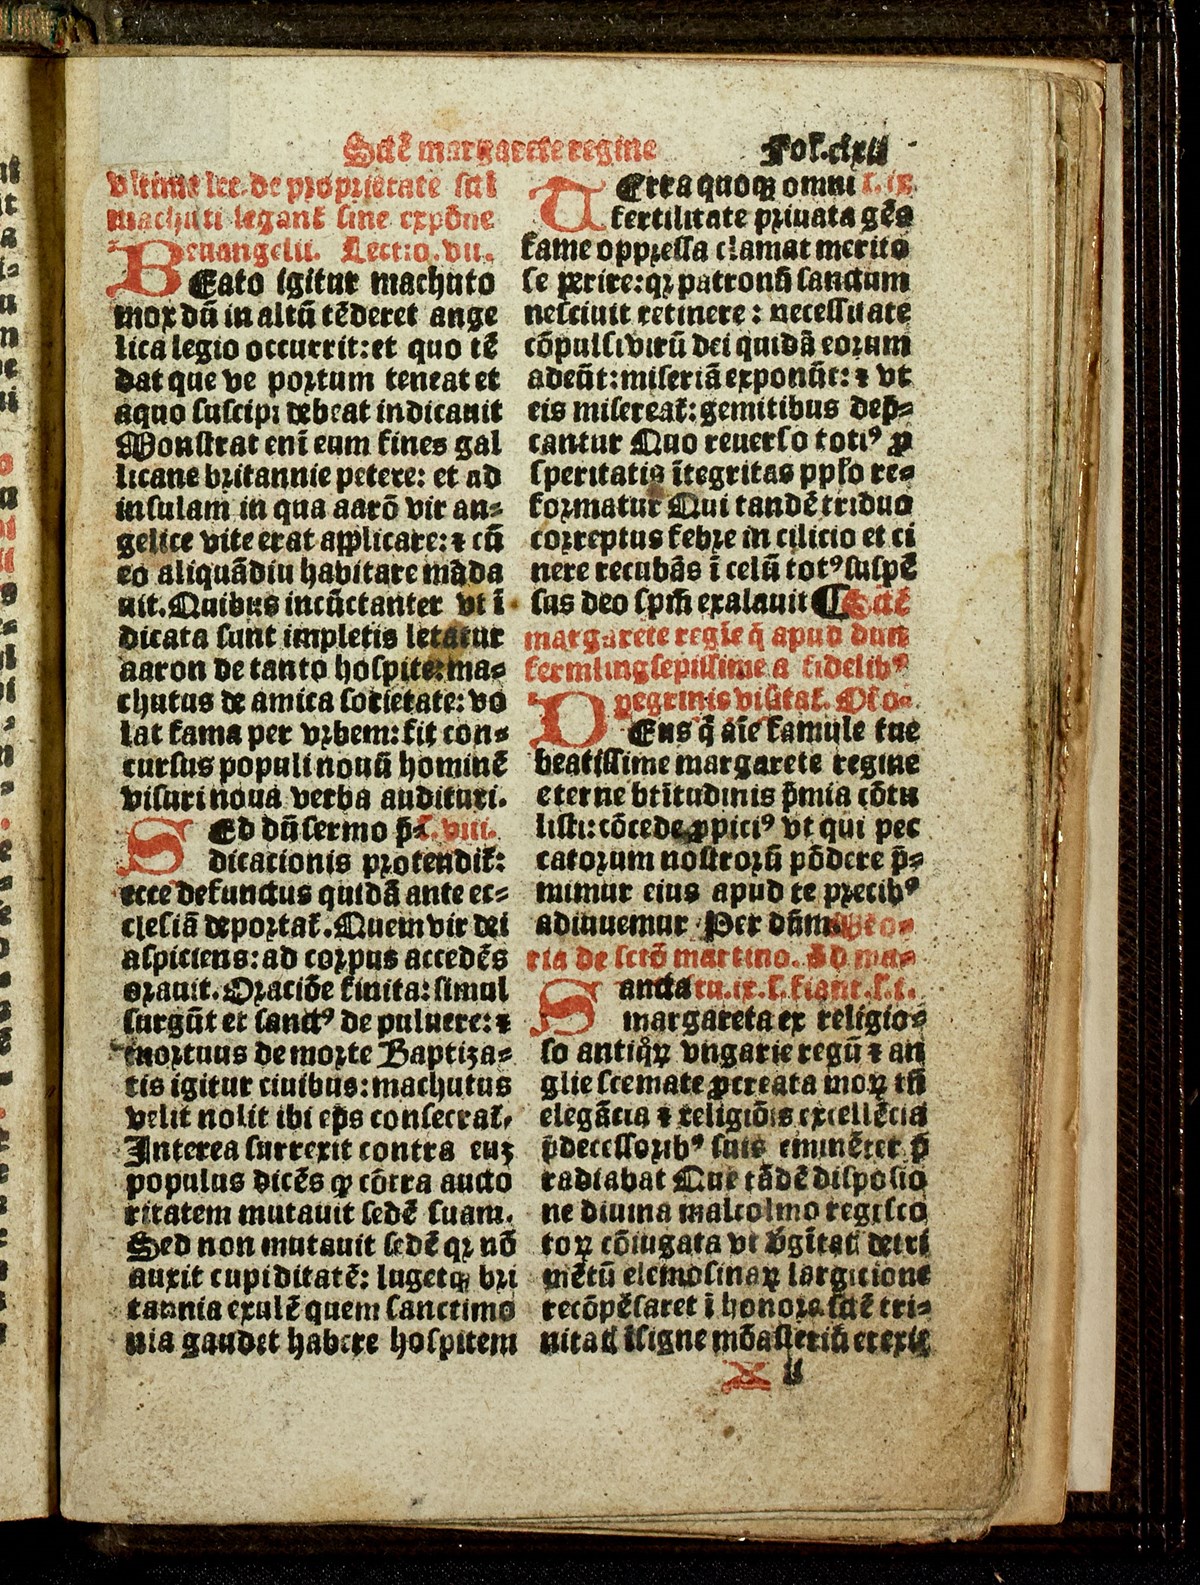 Scte᷒ margarete regine Fol. clxii
Vltime lec. de proprietate scī
machuti legant̄ sine expōne
euangelii. Lectio. vii.
BEato igitur machuto
mox dū in altū tēderet ange
lica legio occurrit: et quo tē
dat que ve portum teneat et
aquo suscipi debeat indicauit
Monstrat enī eum fines gal
licane britannie petere: et ad
insulam in qua aarō vir an-
gelice vite erat applicare: ⁊ cū
eo aliquādiu habitare māda
uit. Quibus incūctanter vt ī
dicata sunt impletis letatur
aaron de tanto hospite: ma-
chutus de amica societate: vo
lat fama per vrbem: fit con-
cursus populi nouū hominē
visuri noua verba audituri.
SEd dū sermo p̄- l. viii.
dicationis protendit̄:
ecce defunctus quidā ante ec-
clesiā deportat̄. Quem vir dei
aspiciens: ad corpus accedēs
orauit. Oraciōe finita: simul
surgūt et sanctꝰ de puluere: ⁊
mortuus de morte Baptiza-
tis igitur ciuibus: machutus
velit nolit ibi ep̄s consecrat̄.
Interea surrexit contra euꝫ
populus dicēs ꝙ cōtra aucto
ritatem mutauit sedē suam.
Sed non mutauit sedē qꝛ nō
auxit cupiditatē: lugetqꝫ bri
tannia exulē quem sanctimo
nia gaudet habere hospitem
TErra quoqꝫ omni l. ix
fertilitate priuata gēs
fame oppressa clamat merito
se ꝑerire: qꝛ patronū sanctum
nesciuit retinere: necessitate
cōpulsi virū dei quidā eorum
adeūt: miseriā exponūt: ⁊ vt
eis misereat̄: gemitibus dep̄-
cantur Quo reuerso totiꝰ ꝓ
speritatis ītegritas ppl̄o re-
formatur Qui tandē triduo
correptus febre in cilicio et ci
nere recubās ī celū totꝰ suspē
sus deo spm̄ exalauit ¶ Scte᷒
margarete regīe q̄ apud dun
fermling sepissime a fidelibꝰ
pegrinis visitat̄. Or̄o.
DEus q̄ aīe famule tue
beatissime margarete regine
eterne bt̄itudinis p̄mia cōtu
listi: cōcede ꝓpiciꝰ vt qui pec
catorum nostrorū pōdere p̄-
mimur eius apud te precibꝰ
adiuuemur Per dn̄m Meo-
ria de sctō martino. Ad ma-
Sancta tu. ix. l. fiant. l. i.
margareta ex religio-
so antiqͦꝝ vngarie regū ⁊ an
glie scemate ꝓcreata moꝝ tn̄
elegācia ⁊ religiōis excellēcia
p̄decessoribꝰ suis eminēter p̄
radiabat Que tādē disposio
ne diuina malcolmo regi sco
toꝝ cōiugata vt v̄gītati detri
mētū elemosinaꝝ largicione
recōpēsaret ī honorē scte᷒ tri-
nitatī īsigne mōasteriū erexit
x ii